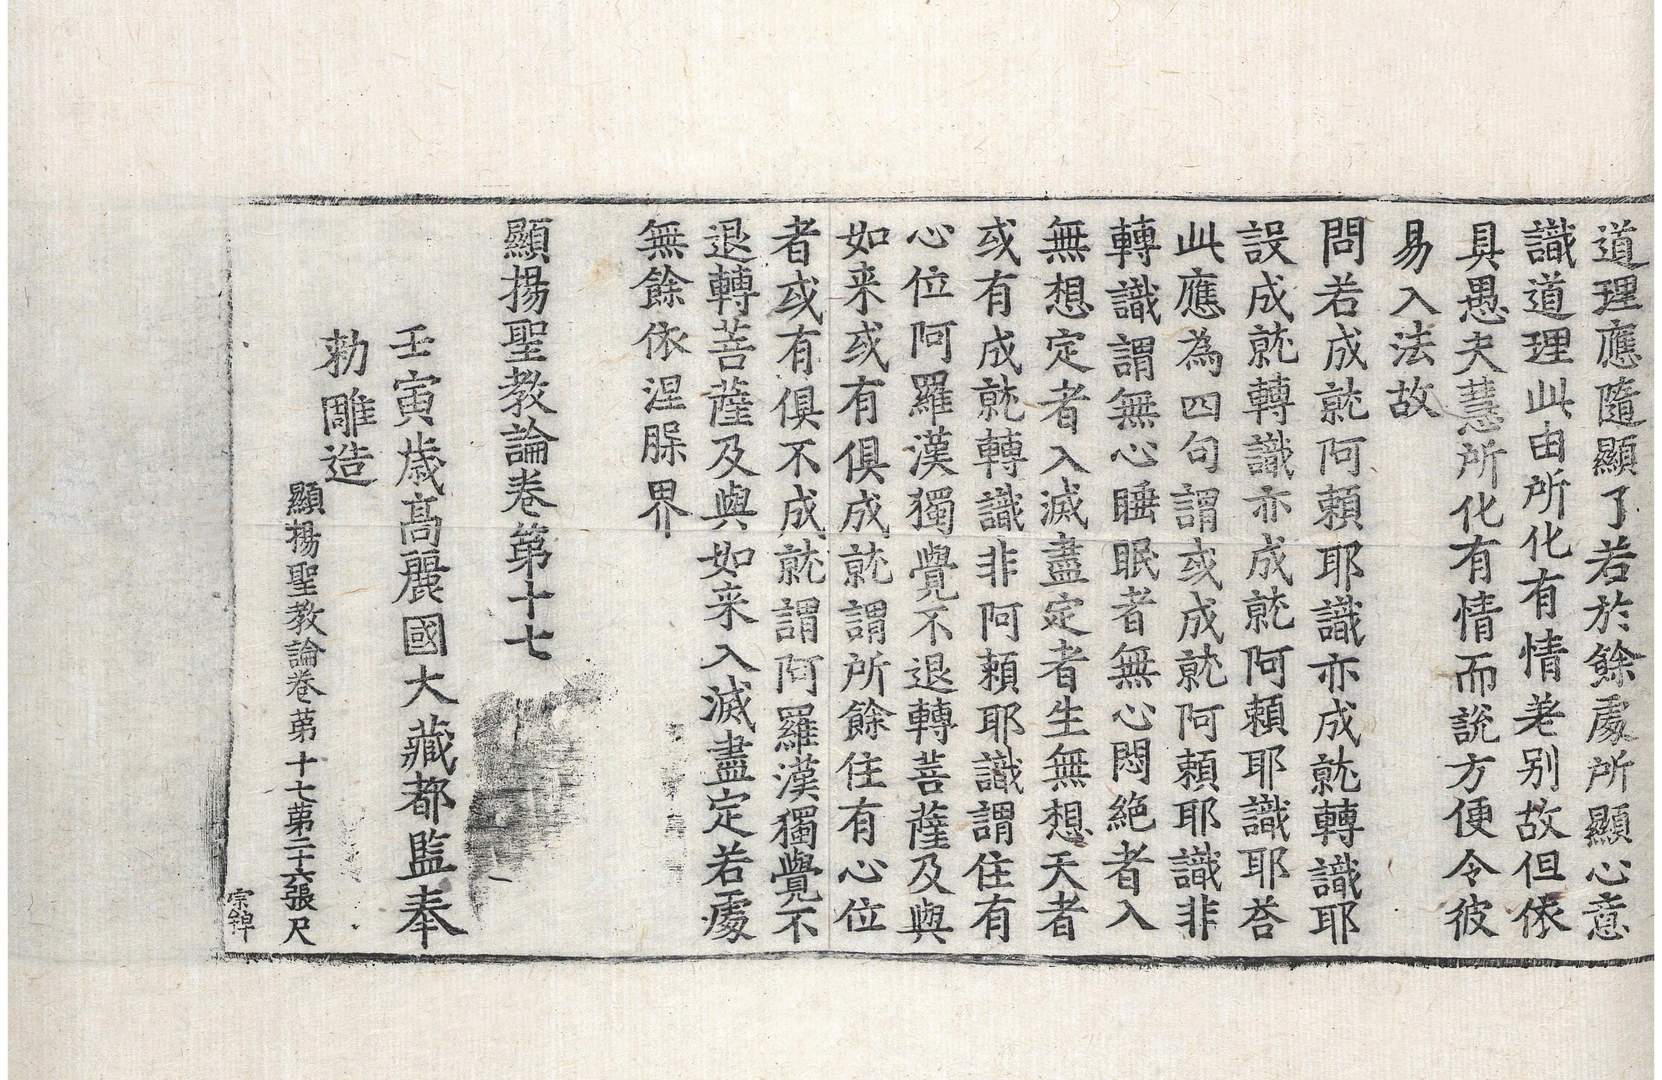 道理應隨顯了若於餘處所顯心意
識道理此由所化有情差别故但依
具愚夫慧所化有情而說方便令彼
易入法故
問若成就阿頼耶識亦成就轉識耶
設成就轉識亦成就阿頼耶識耶荅
此應為四句謂或成就阿頼耶識非
轉識謂無心睡眠者無心悶絶者入
無想定者入滅盡定者生無想天者
或有成就轉識非阿頼耶識謂住有
心位阿羅漢獨覺不退轉菩薩及與
如来或有俱成就謂所餘住有心位
者或有俱不成就謂阿羅漢獨覺不
退轉菩薩及與如来入滅盡定若處
無餘依涅槃界
顯揚聖教論卷第十七
壬寅歳高麗國大藏都監奉
勑雕造
顯揚聖教論卷苐十七苐二十六張 尺